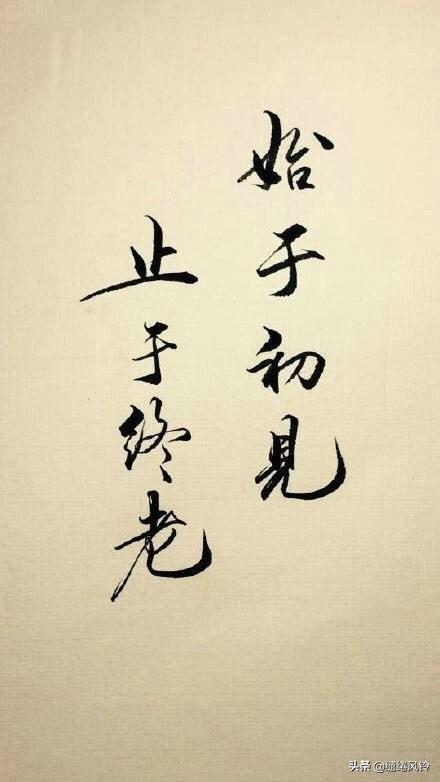 始于初見
止于終老
头条 @缱绻风铃